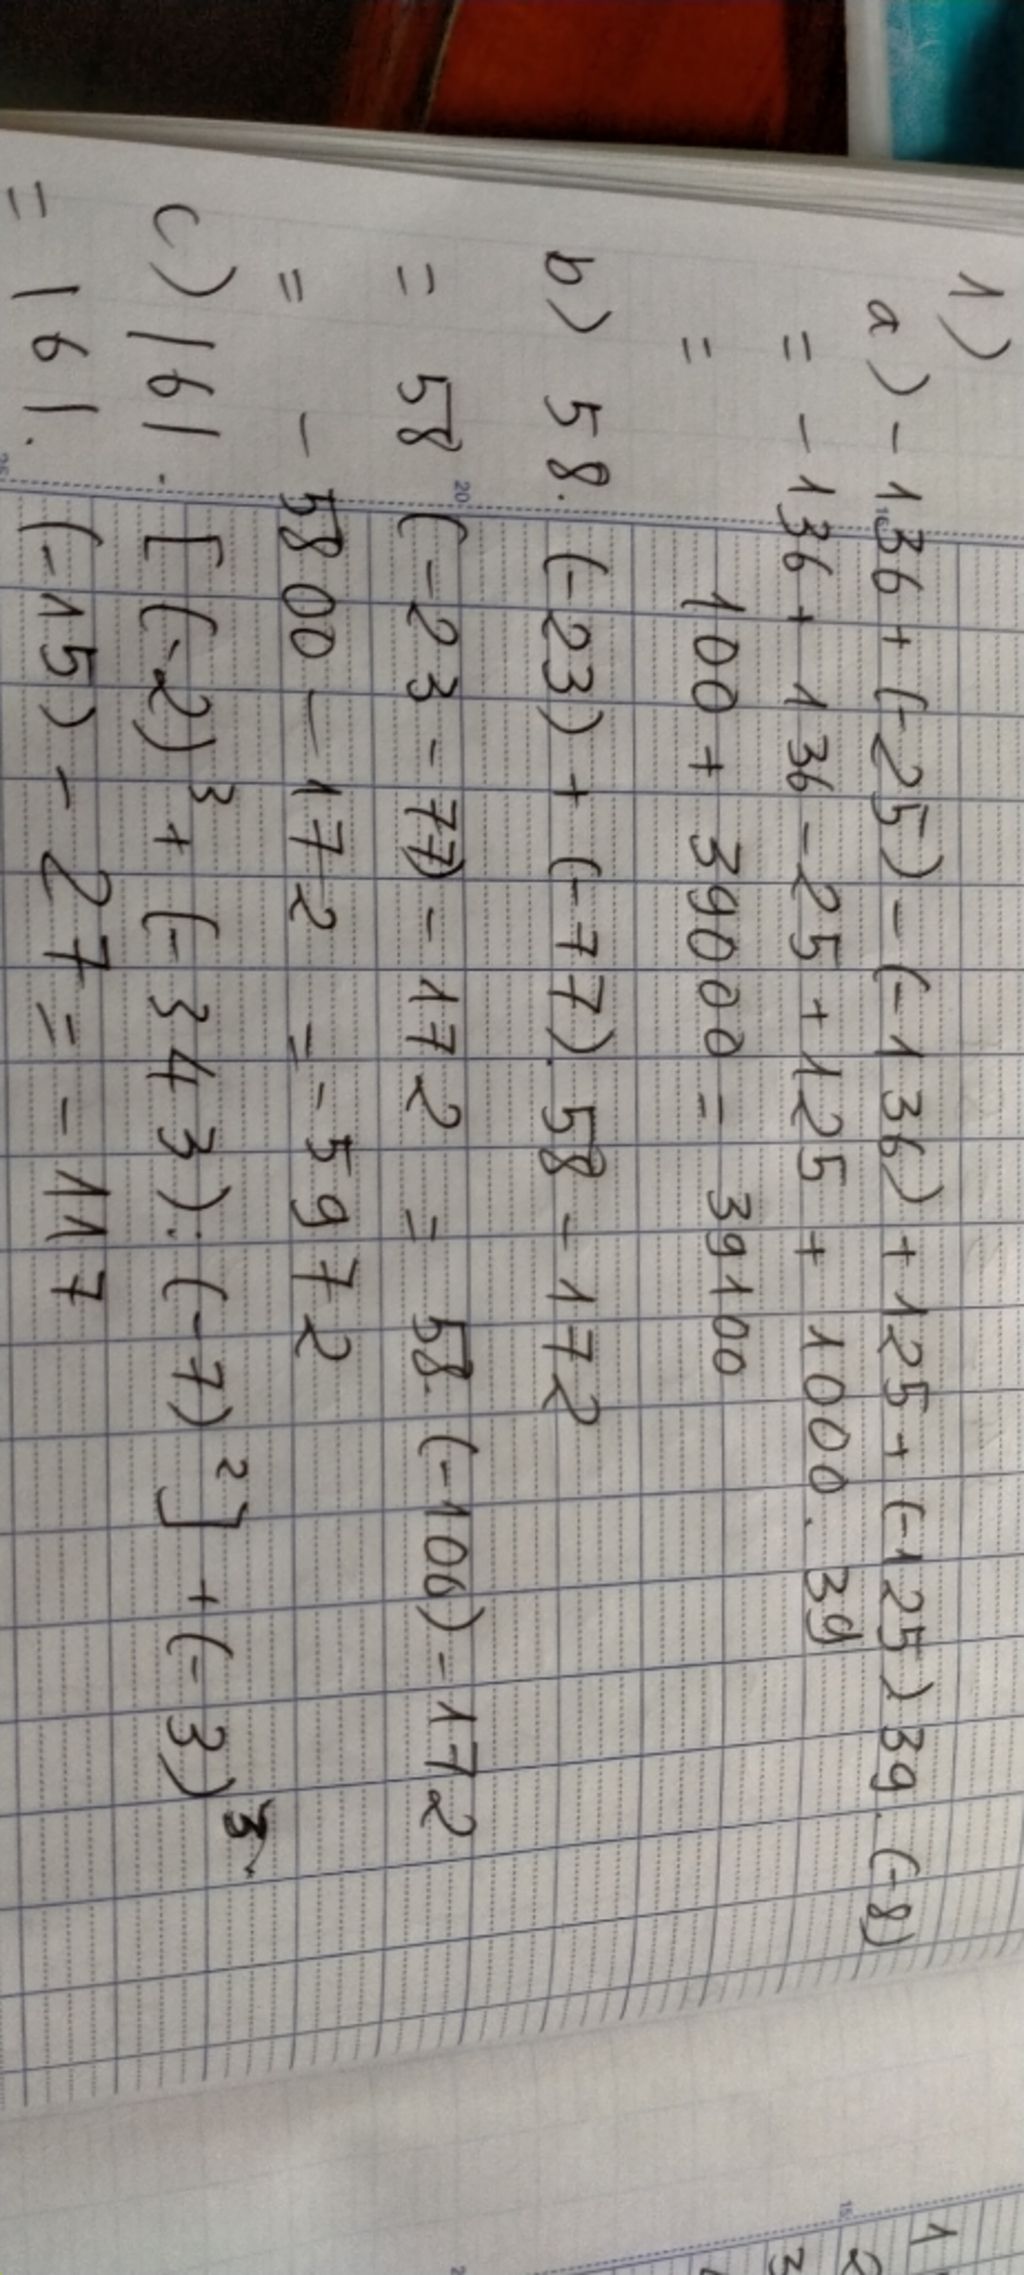 1)
a) -136 + (-25) - (-136) + 125 + (-125) 39. (-8)
= -136 + 136 - 25 + 125 + 1000. 39
= 100 + 39000 = 39100
b) 58. (-23) + (-77). 58 - 172
= 58 (-23 - 77) - 172 = 58. (-100) - 172
= - 5800 - 172 = - 5972
c) |6|. [(-2)³ + (-343) : (-7)²] + (-3)³
= |6|. (-15) - 27 = -117
1
2
3